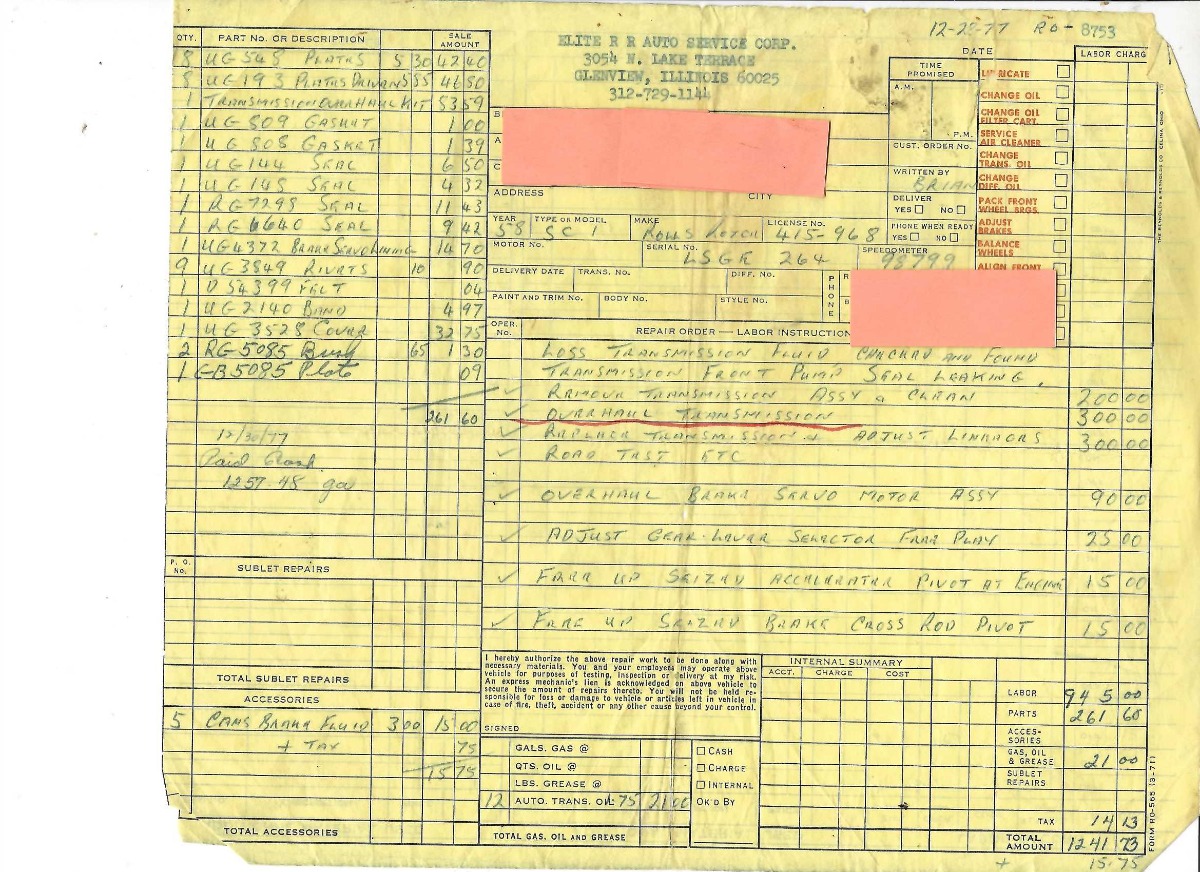 12-28-77 RO- 8753
ELITE R R AUTO SERVICE CORP.
3054 N. LAKE TERRACE
GLENVIEW, ILLINOIS 60025
312-729-1144
QTY. PART No. OR DESCRIPTION SALE AMOUNT
8 UG 548 PLATES 5 30 42 40
8 UG 193 PLATES DRIVEN 5 85 46 50
1 TRANSMISSION OVERHAUL KIT 83 59
1 UG 809 GASKET 1 00
1 UG 808 GASKET 1 39
1 UG 144 SEAL 6 50
1 UG 148 SEAL 4 32
1 RG 7298 SEAL 11 43
1 RG 6640 SEAL 9 42
1 UG 4372 BRAKE SERVO LINING 14 70
9 UG 3849 RIVETS 10 90
1 D 54399 FELT 04
1 UG 2140 BAND 4 97
1 UG 3528 COVER 32 75
2 RG 5085 Bush 65 1 30
1 GB 5085 Plate 09
261 60
12/30/77
Paid Cash
1257.48
P. O. No. SUBLET REPAIRS
TOTAL SUBLET REPAIRS
ACCESSORIES
5 CANS BRAKE FLUID 3 00 15 00
+ TAX 75
15 75
TOTAL ACCESSORIES
DATE
TIME PROMISED
A.M.
P.M.
CUST. ORDER No.
WRITTEN BY
BRIAN
DELIVER
YES NO
PHONE WHEN READY
YES NO
LABOR CHARG
LUBRICATE
CHANGE OIL
CHANGE OIL FILTER CART.
SERVICE AIR CLEANER
CHANGE TRANS. OIL
CHANGE DIFF. OIL
PACK FRONT WHEEL BRGS.
ADJUST BRAKES
BALANCE WHEELS
ALIGN FRONT
ADDRESS CITY
YEAR TYPE OR MODEL MAKE LICENSE No.
58 SC 1 ROLLS ROYCE 415-968
MOTOR No. SERIAL No. SPEEDOMETER
LSGE 264 98799
DELIVERY DATE TRANS. No. DIFF. No. PHONE
PAINT AND TRIM No. BODY No. STYLE No.
OPER. No. REPAIR ORDER — LABOR INSTRUCTION
LOSS TRANSMISSION FLUID CHECKED AND FOUND
TRANSMISSION FRONT PUMP SEAL LEAKING.
REMOVE TRANSMISSION ASSY & CLEAN 200 00
OVERHAUL TRANSMISSION 300 00
REPLACE TRANSMISSION & ADJUST LINKAGES 300 00
ROAD TEST ETC
OVERHAUL BRAKE SERVO MOTOR ASSY 90 00
ADJUST GEAR LEVER SELECTOR FREE PLAY 25 00
FREE UP SEIZED ACCELERATER PIVOT AT ENGINE 15 00
FREE UP SEIZED BRAKE CROSS ROD PIVOT 15 00
I hereby authorize the above repair work to be done along with
necessary materials. You and your employees may operate above
vehicle for purposes of testing, inspection or delivery at my risk.
An express mechanic's lien is acknowledged on above vehicle to
secure the amount of repairs thereto. You will not be held re-
sponsible for loss or damage to vehicle or articles left in vehicle in
case of fire, theft, accident or any other cause beyond your control.
SIGNED
GALS. GAS @
QTS. OIL @
LBS. GREASE @
12 AUTO. TRANS. OIL 1.75 21 00
TOTAL GAS, OIL AND GREASE
CASH
CHARGE
INTERNAL
OK'D BY
INTERNAL SUMMARY
ACCT. CHARGE COST
LABOR 945 00
PARTS 261 60
ACCES-SORIES
GAS, OIL & GREASE 21 00
SUBLET REPAIRS
TAX 14 13
TOTAL AMOUNT 1241 73
+ 15.75
FORM RO-565 (3-71)